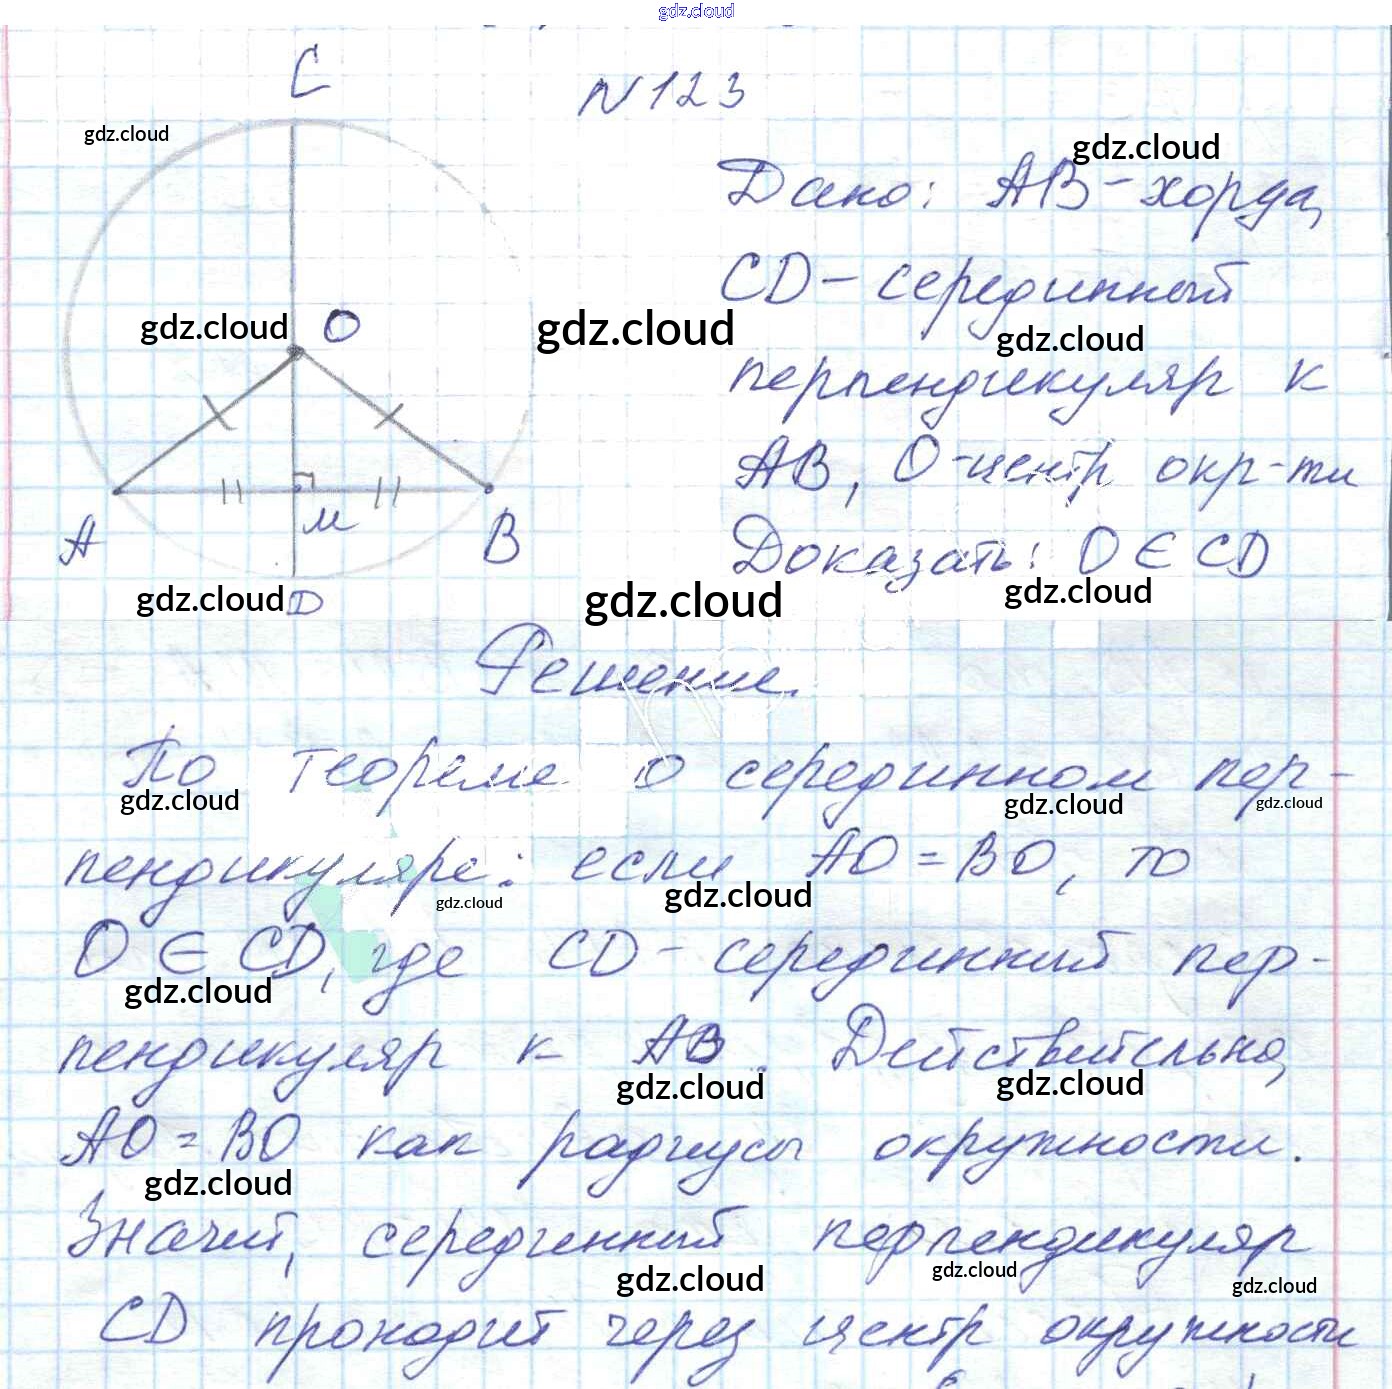 gdz.cloud
C
N 123
gdz.cloud
gdz.cloud
Дано: AB - хорда,
CD - серединный
gdz.cloud O gdz.cloud
gdz.cloud
перпендикуляр к
AB, O - центр окр-ти
M
A B
Доказать: O ∈ CD
gdz.cloud D gdz.cloud gdz.cloud
Решение.
По теореме о серединном пер-
gdz.cloud gdz.cloud gdz.cloud
пендикуляре: если AO = BO, то
gdz.cloud gdz.cloud
O ∈ CD, где CD - серединный пер-
gdz.cloud
пендикуляр к AB. Действительно,
gdz.cloud gdz.cloud
AO = BO как радиусы окружности.
gdz.cloud
Значит, серединный перпендикуляр
gdz.cloud gdz.cloud gdz.cloud
CD проходит через центр окружности